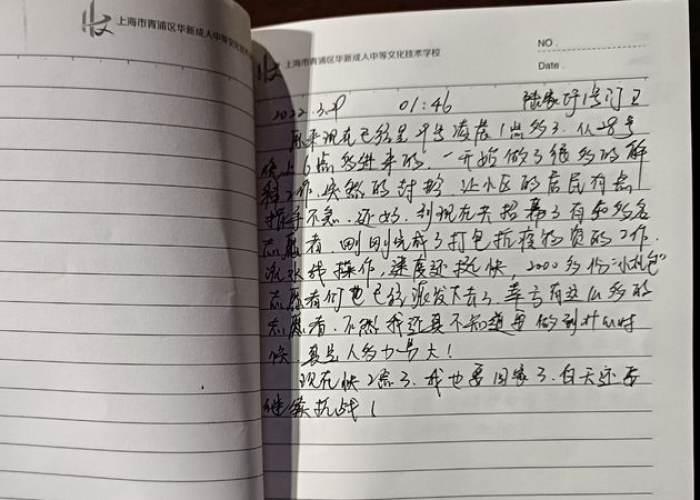 上海市青浦区华新成人中等文化技术
上海市青浦区华新成人中等文化技术学校
NO.
Date.
2022.3.29 01:46 1号门卫
原来现在已经是29号凌晨1点多了.从28号
晚上6点多进来的.一开始做了很多的解
释工作.突然的封控.让小区的居民有点
措手不急.还好.到现在共招募了有30多名
志愿者.刚刚完成了打包抗疫物资的工作.
流水线操作,速度还挺快,2000多份"小礼包"
志愿者们也已经派发下去了.幸亏有这么多的
志愿者.不然我还真不知道要做到什么时
候.真是人多力量大!
现在快2点了.我也要回家了.白天还要
继续抗战!